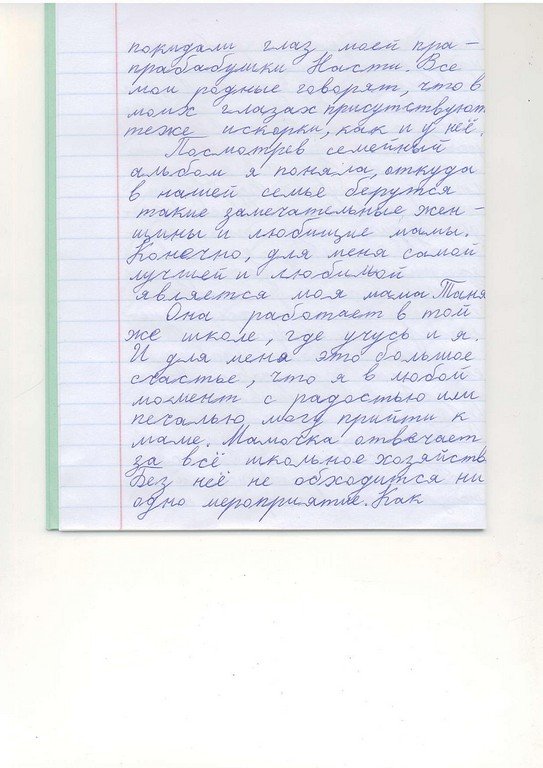 покидали глаз моей пра-
прабабушки Насти. Все
мои родные говорят, что в
моих глазах присутствуют
теже искорки, как и у неё.
Посмотрев семейный
альбом я поняла, откуда
в нашей семье берутся
такие замечательные жен-
щины и любящие мамы.
Конечно, для меня самой
лучшей и любимой
является моя мама Таня
Она работает в той
же школе, где учусь и я.
И для меня это большое
счастье, что я в любой
момент с радостью или
печалью могу прийти к
маме. Мамочка отвечает
за всё школьное хозяйств
Без неё не обходится ни
одно мероприятие. Как